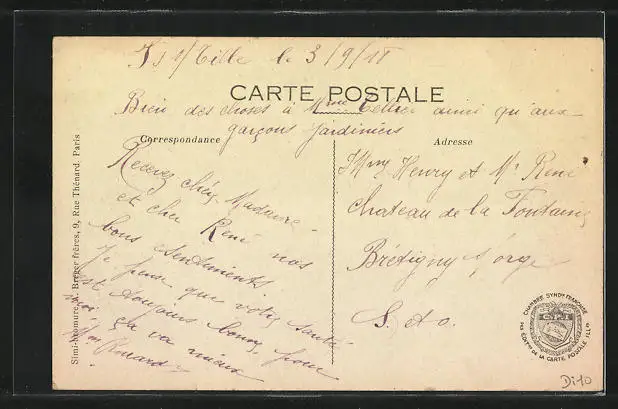 Is s/Tille le 3/9/18
CARTE POSTALE
Bien des choses à Mme Tellier ainsi qu'aux
garçons jardiniers
Correspondance
Recevez chère Madame
et cher René nos
bons sentiments
Je pense que votre santé
est toujours bonne, pour
moi ça va mieux
Adresse
Mme Henry et Mr René
Chateau de la Fontaine
Brétigny s/orge
S. et O.
Simi-bromure, Breger frères, 9, Rue Thénard, Paris
CHAMBRE SYND. FRANÇAISE
DE LA CARTE POSTALE ILL.
Di10